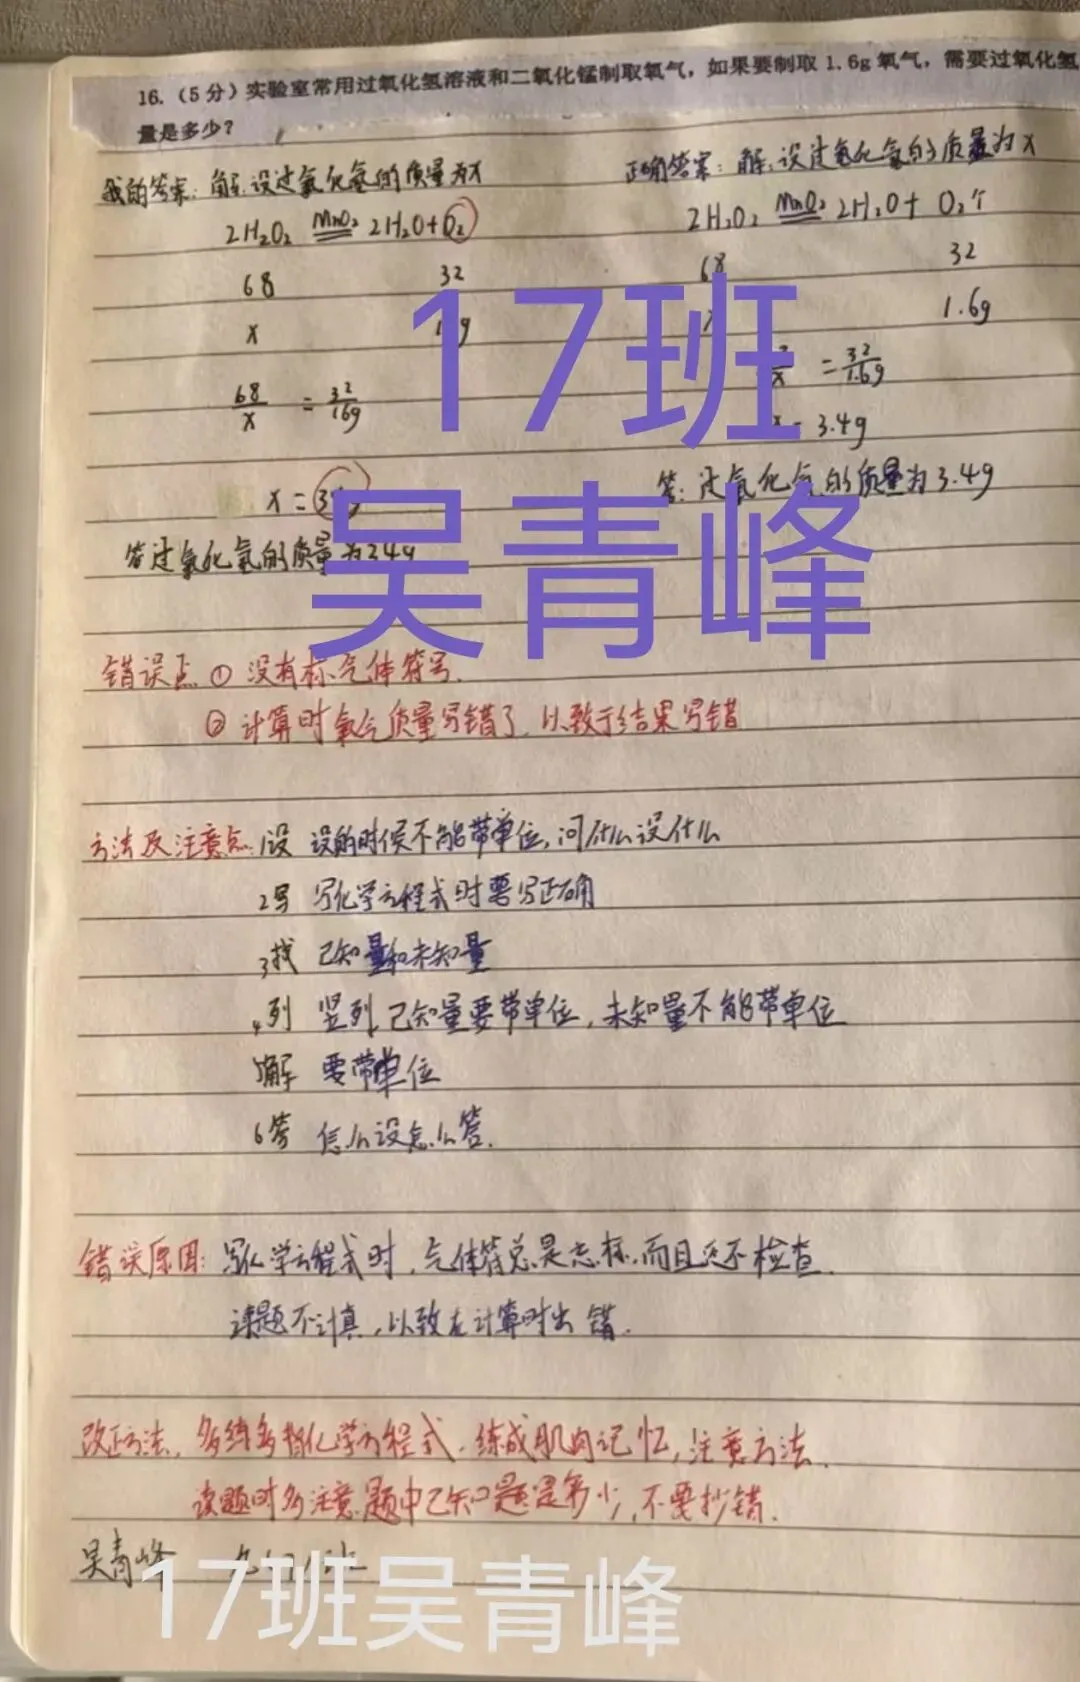 16.（5分）实验室常用过氧化氢溶液和二氧化锰制取氧气，如果要制取1.6g氧气，需要过氧化氢
量是多少？
我的答案：解：设过氧化氢的质量为x
2H₂O₂ MnO₂ 2H₂O+O₂
68 32
x g
68/x = 32/16g
x=34g
答过氧化氢的质量为34g
正确答案：解：设过氧化氢的质量为x
2H₂O₂ MnO₂ 2H₂O+ O₂↑
68 32
1.6g
x = 32/1.6g
= 3.4g
答：过氧化氢的质量为3.4g
17班
吴青峰
错误点 ① 没有标气体符号.
② 计算时氧气质量写错了，以致于结果写错
方法及注意点：1设 设的时候不能带单位，问什么设什么
2写 写化学方程式时要写正确
3找 已知量和未知量
4列 竖列，已知量要带单位，未知量不能带单位
5解 要带单位
6答 怎么设怎么答.
错误原因：写化学方程式时，气体符总是忘标，而且还不检查.
读题不认真，以致在计算时出错.
改正方法，多练多 化学方程式，练成肌肉记忆，注意方法.
读题时多注意题中已知 题是多少，不要抄错.
吴青峰
17班吴青峰